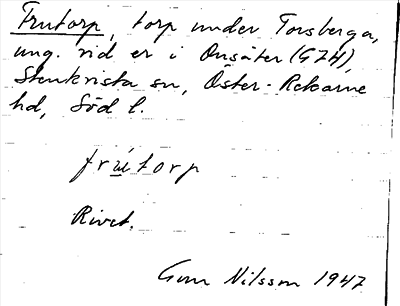 Frutorp, torp under Torsberga,
ung. vid er i Onsäter (G7H),
Stenkvista sn, Öster-Rekarne
hd, Söd l.
frútorp
Rivet.
Gun Nilsson 1947